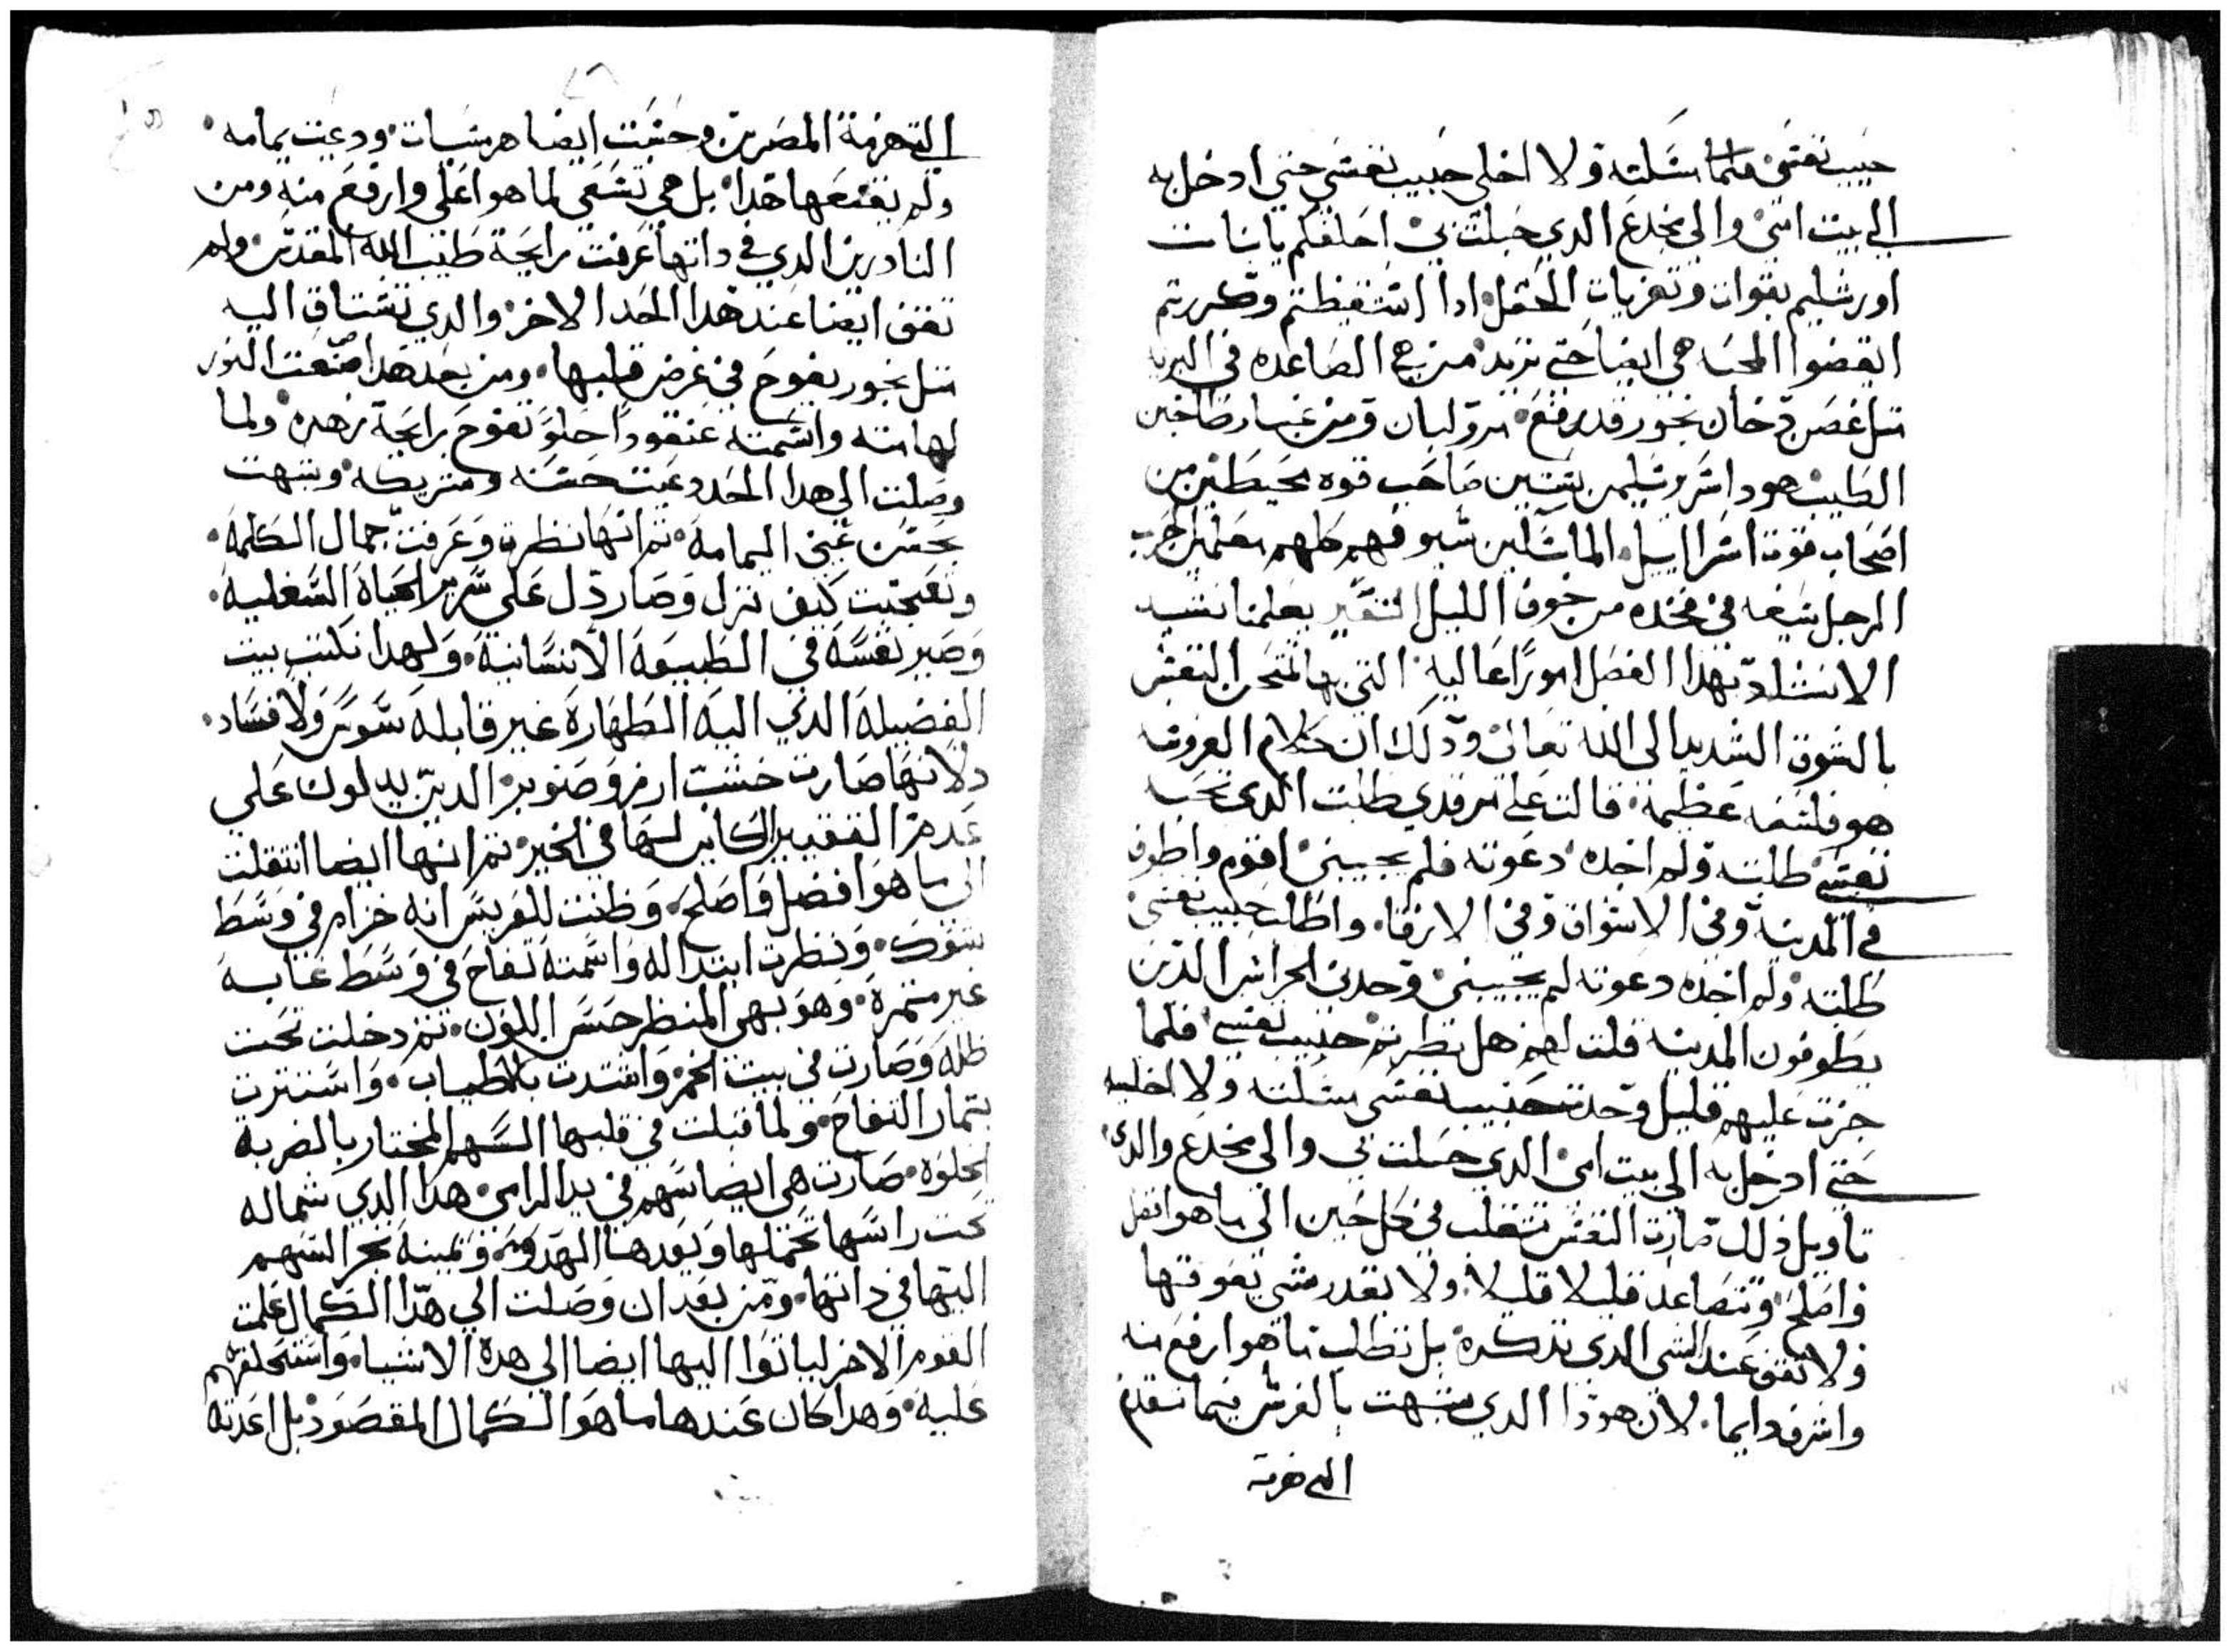 حبيب نفسي فلما مسكته ولا اخلي حبيب نفسي حتي ادخل به
الي بيت امي والي مخدع الدي حبلت بي احلفكم يا بنات
اورشليم بقوات وتعزيات الحقل ادا استيقظتم وكررتم
انهضوا المحبه هي ايضا حتي تريد من هي الصاعده في البريه
متل غصن دخان بخور قد رفع مر ولبان ومن غبار طاحين
الطيب هودا سرير سليمن ستين صاحب قوه محيطين من
اصحاب قوت اسراييل الماسكين سيوفهم كلهم معلمين حرب
الرجل سيفه في فخده من خوف الليل التفسير يعلمنا نشيد
الانشاد بهذا الفصل امورًا عاليه التي بها تمتحن النفس
بالشوق الشديد الى الله تعالى ودلك ان كلام العروسه
هو فلسفه عظيمة قالت على مرقدي طلبت الدي تحبه
نفسي طلبته ولم اجده دعوته فلم يجيبني اقوم واطوف
في المدينه وفي الاسواق وفي الازقا واطلب حبيب نفسي
طلبته ولم اجده دعوته لم يجيبني وجدني الحراس الدين
يطوفون المدينه قلت لهم هل نظرتم حبيب نفسي فلما
جزت عليهم قليل وجدت حبيب نفسي مسكته ولا اخليه
حتي ادخل به الي بيت امي الدي حبلت بي والي مخدع والدي
تاويل ذلك صارت النفس تنتقلب في كل حين الى ما هو افضل
واصلح وتتصاعد قليلا قليلا ولا يقدر شي يفوتها
ولا تقف عند الشي الدي تدكره بل تطلب ما هو ارفع منه
واشرف دايما لان هودا الدي شبهت بالفرس فيما تقدم
التي هزمة
التي هزمة المصريين وحسبت ايضا هرسيات ودعيت يمامه
ولم يقنعها هدا بل هي تسعي لما هو اعلى وارفع منه ومن
النادرين الدي في داتها عرفت رايحة طيب الله المقدس ولم
تقف ايضا عند هدا الحد الاخر والدي تشتاق اليه
متل بخور يفوح في غرض قلبها ومن بعد هدا صنعت النور
لها منه واسمته عنقوداً حلو تفوح برايحة زهره ولما
وصلت الي هدا الحد دعيت حسنه وشريكه وشبهت
بحسن عيني اليمامه تم انها نظرت وعرفت جمال الكلمه
وتعجبت كيف نزل وصار دل على سرير الحياة السفليه
وصير نفسه في الطبيعه الانسانية ولهدا تكتب بيت
الفضيله الدي اليه الطهارة غير قابله سوس ولا فساد
دلانها صارت خشب ارز وصنوبر الدين يدلوك على
عدم التغيير الكاين لها في الخير تم انها ايضا انتقلت
الى ما هو افضل واصلح وظنت للعريس انه خزام في وسط
شوك ونظرت ابتدا له واسمته تفاح في وسط غابه
غير متمرة وهو بهي المنظر حسن اللون تم دخلت تحت
ظله وصارت في بيت الخمر واشتدت بالاطياب واستترت
بتمار التفاح ولما قبلت في قلبها السهم المختار بالضربه
الحلوه صارت هي ايضا سهم في يد الرامي هدا الدي شماله
تحت راسها تحملها ويمينه يجر السهم
اليها في داتها ومن بعد ان وصلت الى هدا الكمال علمت
القوم الاخر لياتوا اليها ايضا الى هده الاشيا واستحلفتهم
عليه وهدا كان عندها ما هو الكمال المقصود بل اعدته